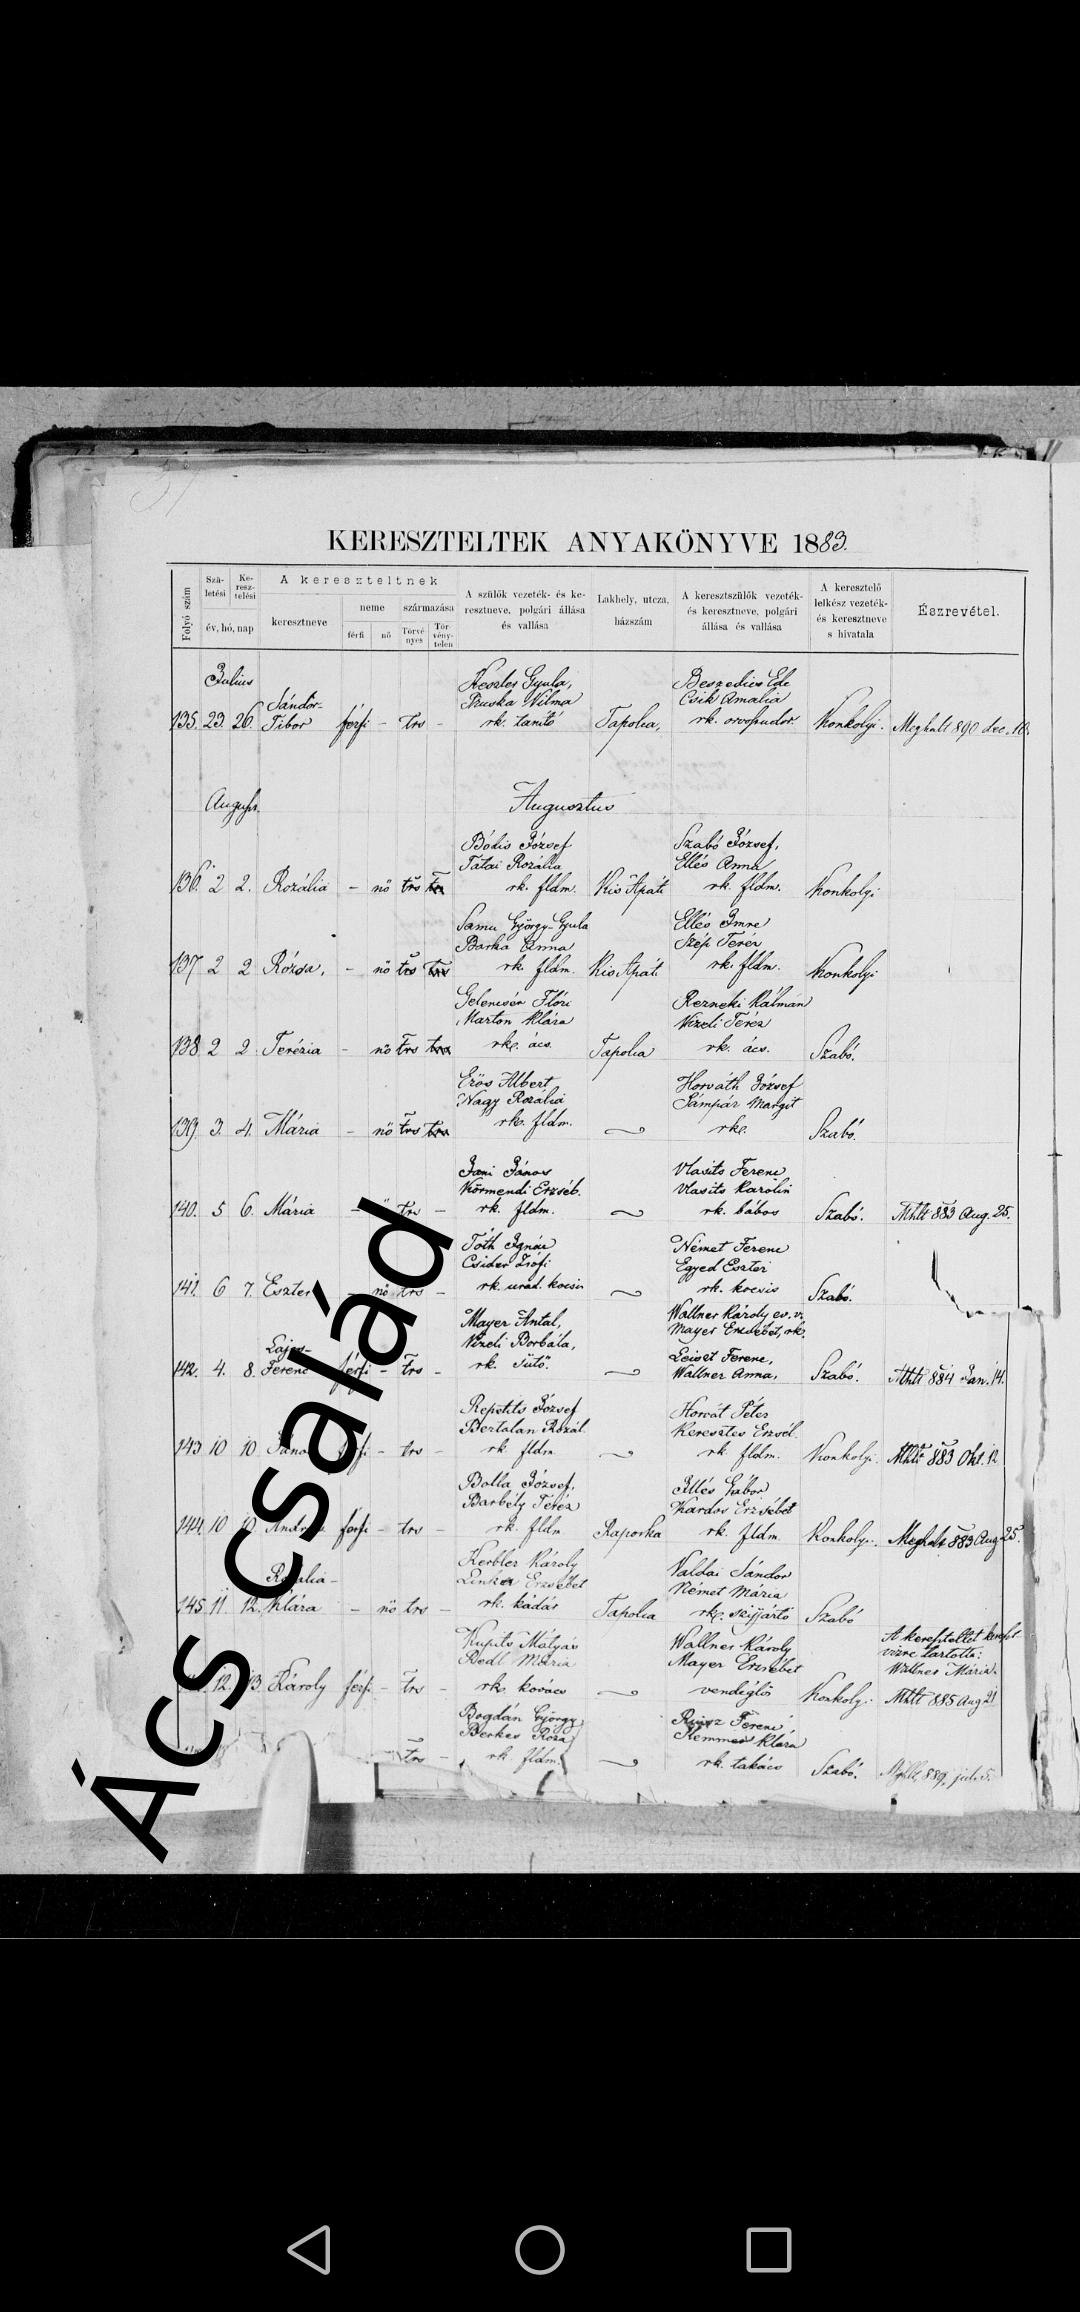 KERESZTELTEK ANYAKÖNYVE 1883.
Folyó szám
Szü-
letési
Ke-
resz-
telési
év, hó, nap
A kereszteltnek
keresztneve
neme
férfi
nő
származása
Törvé
nyes
Tör-
vény-
telen
A szülők vezeték- és ke-
resztneve, polgári állása
és vallása
Lakhely, utcza,
házszám
A keresztszülők vezeték-
és keresztneve, polgári
állása és vallása
A keresztelő
lelkész vezeték-
és keresztneve
s hivatala
Észrevétel.
Julius
Keszler Gyula,
Vilma
Sándor-
Csik Amalia
135. 23. 26. Tibor férfi - trs - rk. tanító Tapolca, rk. Konkolyi. Meghalt 890 dec. 10.
Augusztus
Bódis József
Tatai Rozália
Szabó József,
Illés Anna
136. 2 2. Rozália - nő trs rk. fldm. Kis Apáti rk. fldm. Konkolyi
Samu György-Gyula
Barka Anna
Illés Imre
Szép Teréz
137 2 2 Rózsa, - nő trs rk. fldm. Kis Apáti rk. fldm. Konkolyi
Gelencsér Flóri
Marton Klára
Kálmán
Vizeli Teréz
138. 2 2. Terézia - nő trs rk. ács. Tapolca rk. ács. Szabó.
Erős Albert
Nagy Rozália
Horváth József
Gámpár Margit
139. 3. 4. Mária - nő trs rk. fldm. rk. Szabó.
Jani János
Körmendi Erzséb.
Vlasits Ferenc
Vlasits Karolin
140. 5 6. Mária trs - rk. fldm. rk. bábos Szabó. Mhlt 883 Aug. 25.
Tóth Ignác
Csider Zsófi
Német Ferenc
Egyed Eszter
141. 6 7. Eszter - nő trs - rk. urad. kocsis rk. kocsis Szabó.
Mayer Antal,
Vizeli Borbála,
Wallner Károly ev. v.
Mayer Erzsébet, rk.
Lajos-
Ferenc,
142. 4. 8. Ferenc férfi - trs - rk. sütő. Wallner Anna, Szabó. Mhlt 884 Jan. 14.
József
Bertalan Rozál.
Horvát Péter
Keresztes Erzséb.
143 10 10 - trs - rk fldm. rk fldm. Konkolyi. Mhlt 883 Okt. 12
Bolla József,
Barbély Teréz
Illés Gábor
Kardos Erzsébet
144. 10 férfi - trs - rk. fldm Raposka rk. fldm. Konkolyi. Meghalt 883 Aug 25.
Kerbler Károly
Erzsébet
Valdai Sándor
Német Mária
Rozália-
145 11 12. Klára - nő trs - rk. kádár Tapolca rk. szijjártó Szabó
Mátyás
Mária
Wallner Károly
Mayer Erzsébet
A keresztellet kereszt
vizre tartotta:
Wallner Mária.
12. 13. Károly férfi - trs - rk. kovács vendéglős Konkolyi. Mhlt 885 Aug 21
Bogdán György
Berkes Róza
Ferenc
Klára
trs - rk fldm. rk. takács Szabó. Mhlt 889, jul. 5.
Ács család